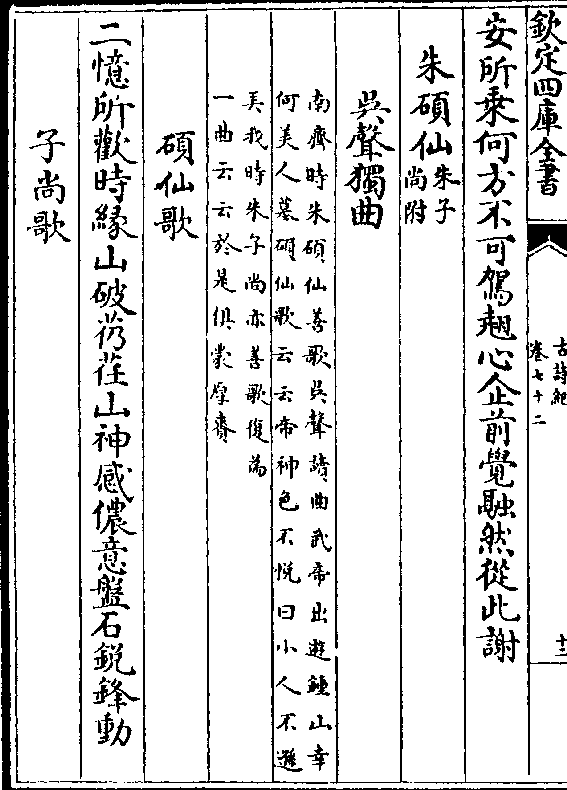 欽定四庫全書
古詩紀
卷七十二
十三
安所乗何方不可駕翹心企前覺融然從此謝
朱碩仙朱子尚附
吳聲獨曲
南齊時朱碩仙善歌吳聲讀曲武帝出遊鍾山幸
何美人墓碩仙歌云云帝神色不恱曰小人不遜
弄我時朱子尚亦善歌復為
一曲云云於是俱蒙厚賚
碩仙歌
二憶所歡時緣山破芿荏山神感儂意盤石鋭鋒動
子尚歌